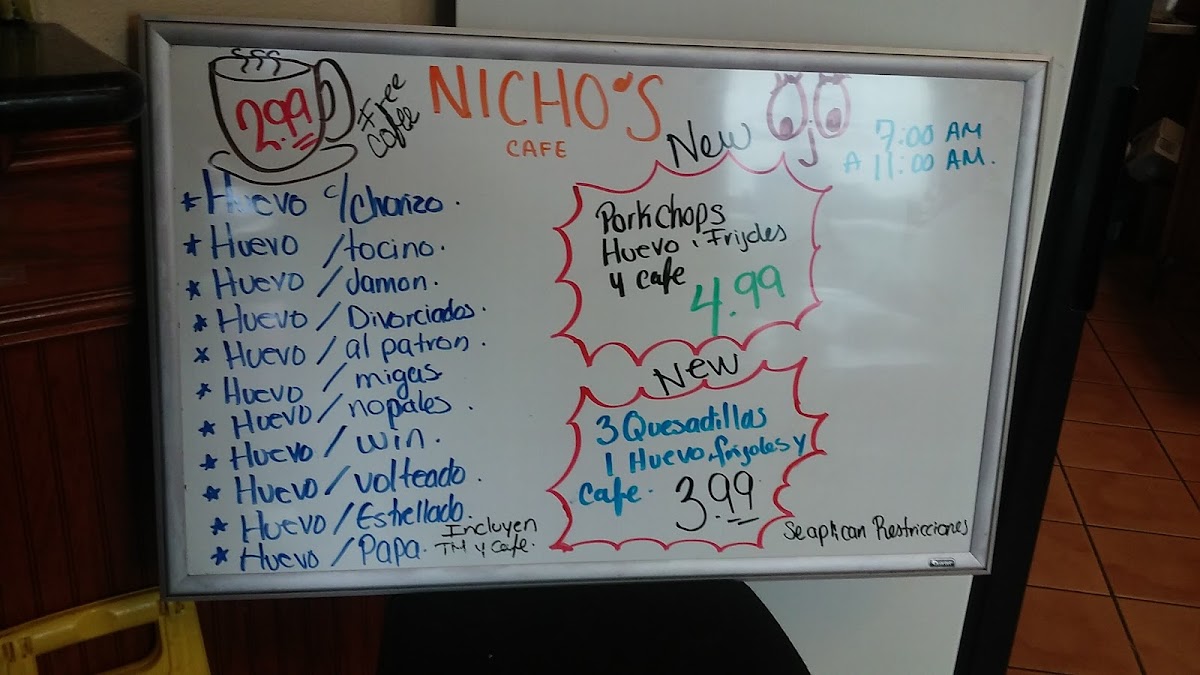 2.99
Free
Coffee
NICHO'S
CAFE
New
Ojo
7:00 AM
A 11:00 AM.
* Huevo c/chorizo.
* Huevo /tocino.
* Huevo /Jamon.
* Huevo /Divorciados.
* Huevo /al patron.
* Huevo /migas.
* Huevo /nopales.
* Huevo /win.
* Huevo /volteado.
* Huevo /Estrellado.
* Huevo /Papa.
Incluyen
TM y Cafe.
Porkchops
Huevo, Frijoles
y cafe
4.99
New
3 Quesadillas
1 Huevo, frijoles y
Cafe.
3.99
Se aplican Restricciones